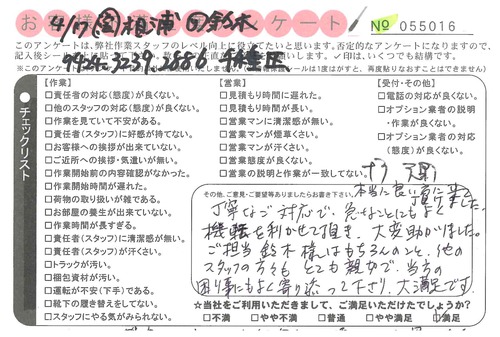 お客様 アンケート
№ 055016
4/7 根浦 鈴木
このアンケートは、弊社作業スタッフのレベル向上に役立てたいと思います。否定的なアンケートになりますので、
☑印は、いくつでも結構です。
●チェックリスト
【作業】
□責任者の対応(態度)が良くない。
□他のスタッフの対応(態度)が良くない。
□作業を見ていて不安がある。
□責任者(スタッフ)に好感が持てない。
□お客様への挨拶が出来ていない。
□ご近所への挨拶・気遣いが無い。
□作業開始前の内容確認がなかった。
□作業開始時間が遅れた。
□荷物の取り扱いが雑である。
□お部屋の養生が出来ていない。
□作業時間が長すぎる。
□責任者(スタッフ)に清潔感が無い。
□責任者(スタッフ)が汗くさい。
□トラックが汚い。
□梱包資材が汚い。
□運転が不安(下手)である。
□靴下の履き替えをしてない。
□スタッフにやる気がみられない。
【営業】
□見積もり時間に遅れた。
□見積もり時間が長い。
□営業マンに清潔感が無い。
□営業マンが煙草くさい。
□営業マンが汗くさい。
□営業態度が良くない。
□営業の説明と作業が一致してない。
【受付・その他】
□電話の対応が良くない。
□オプション業者の説明
・作業が良くない。
□オプション業者の対応
(態度)が良くない。
その他、ご意見・ご要望等ありましたらお書き下さい。
本当に良い方に来て
頂けました。
丁寧なご対応で、急なことにもよく
機転を利かせて頂き、大変助かりました。
ご担当 鈴木様はもちろんのこと、他の
スタッフの方々も とても親切で、当方の
困り事にもよく寄り添って下さり、大満足です。
☆当社をご利用いただきまして、ご満足いただけたでしょうか?
□不満 □やや不満 □普通 □やや満足 ☑満足